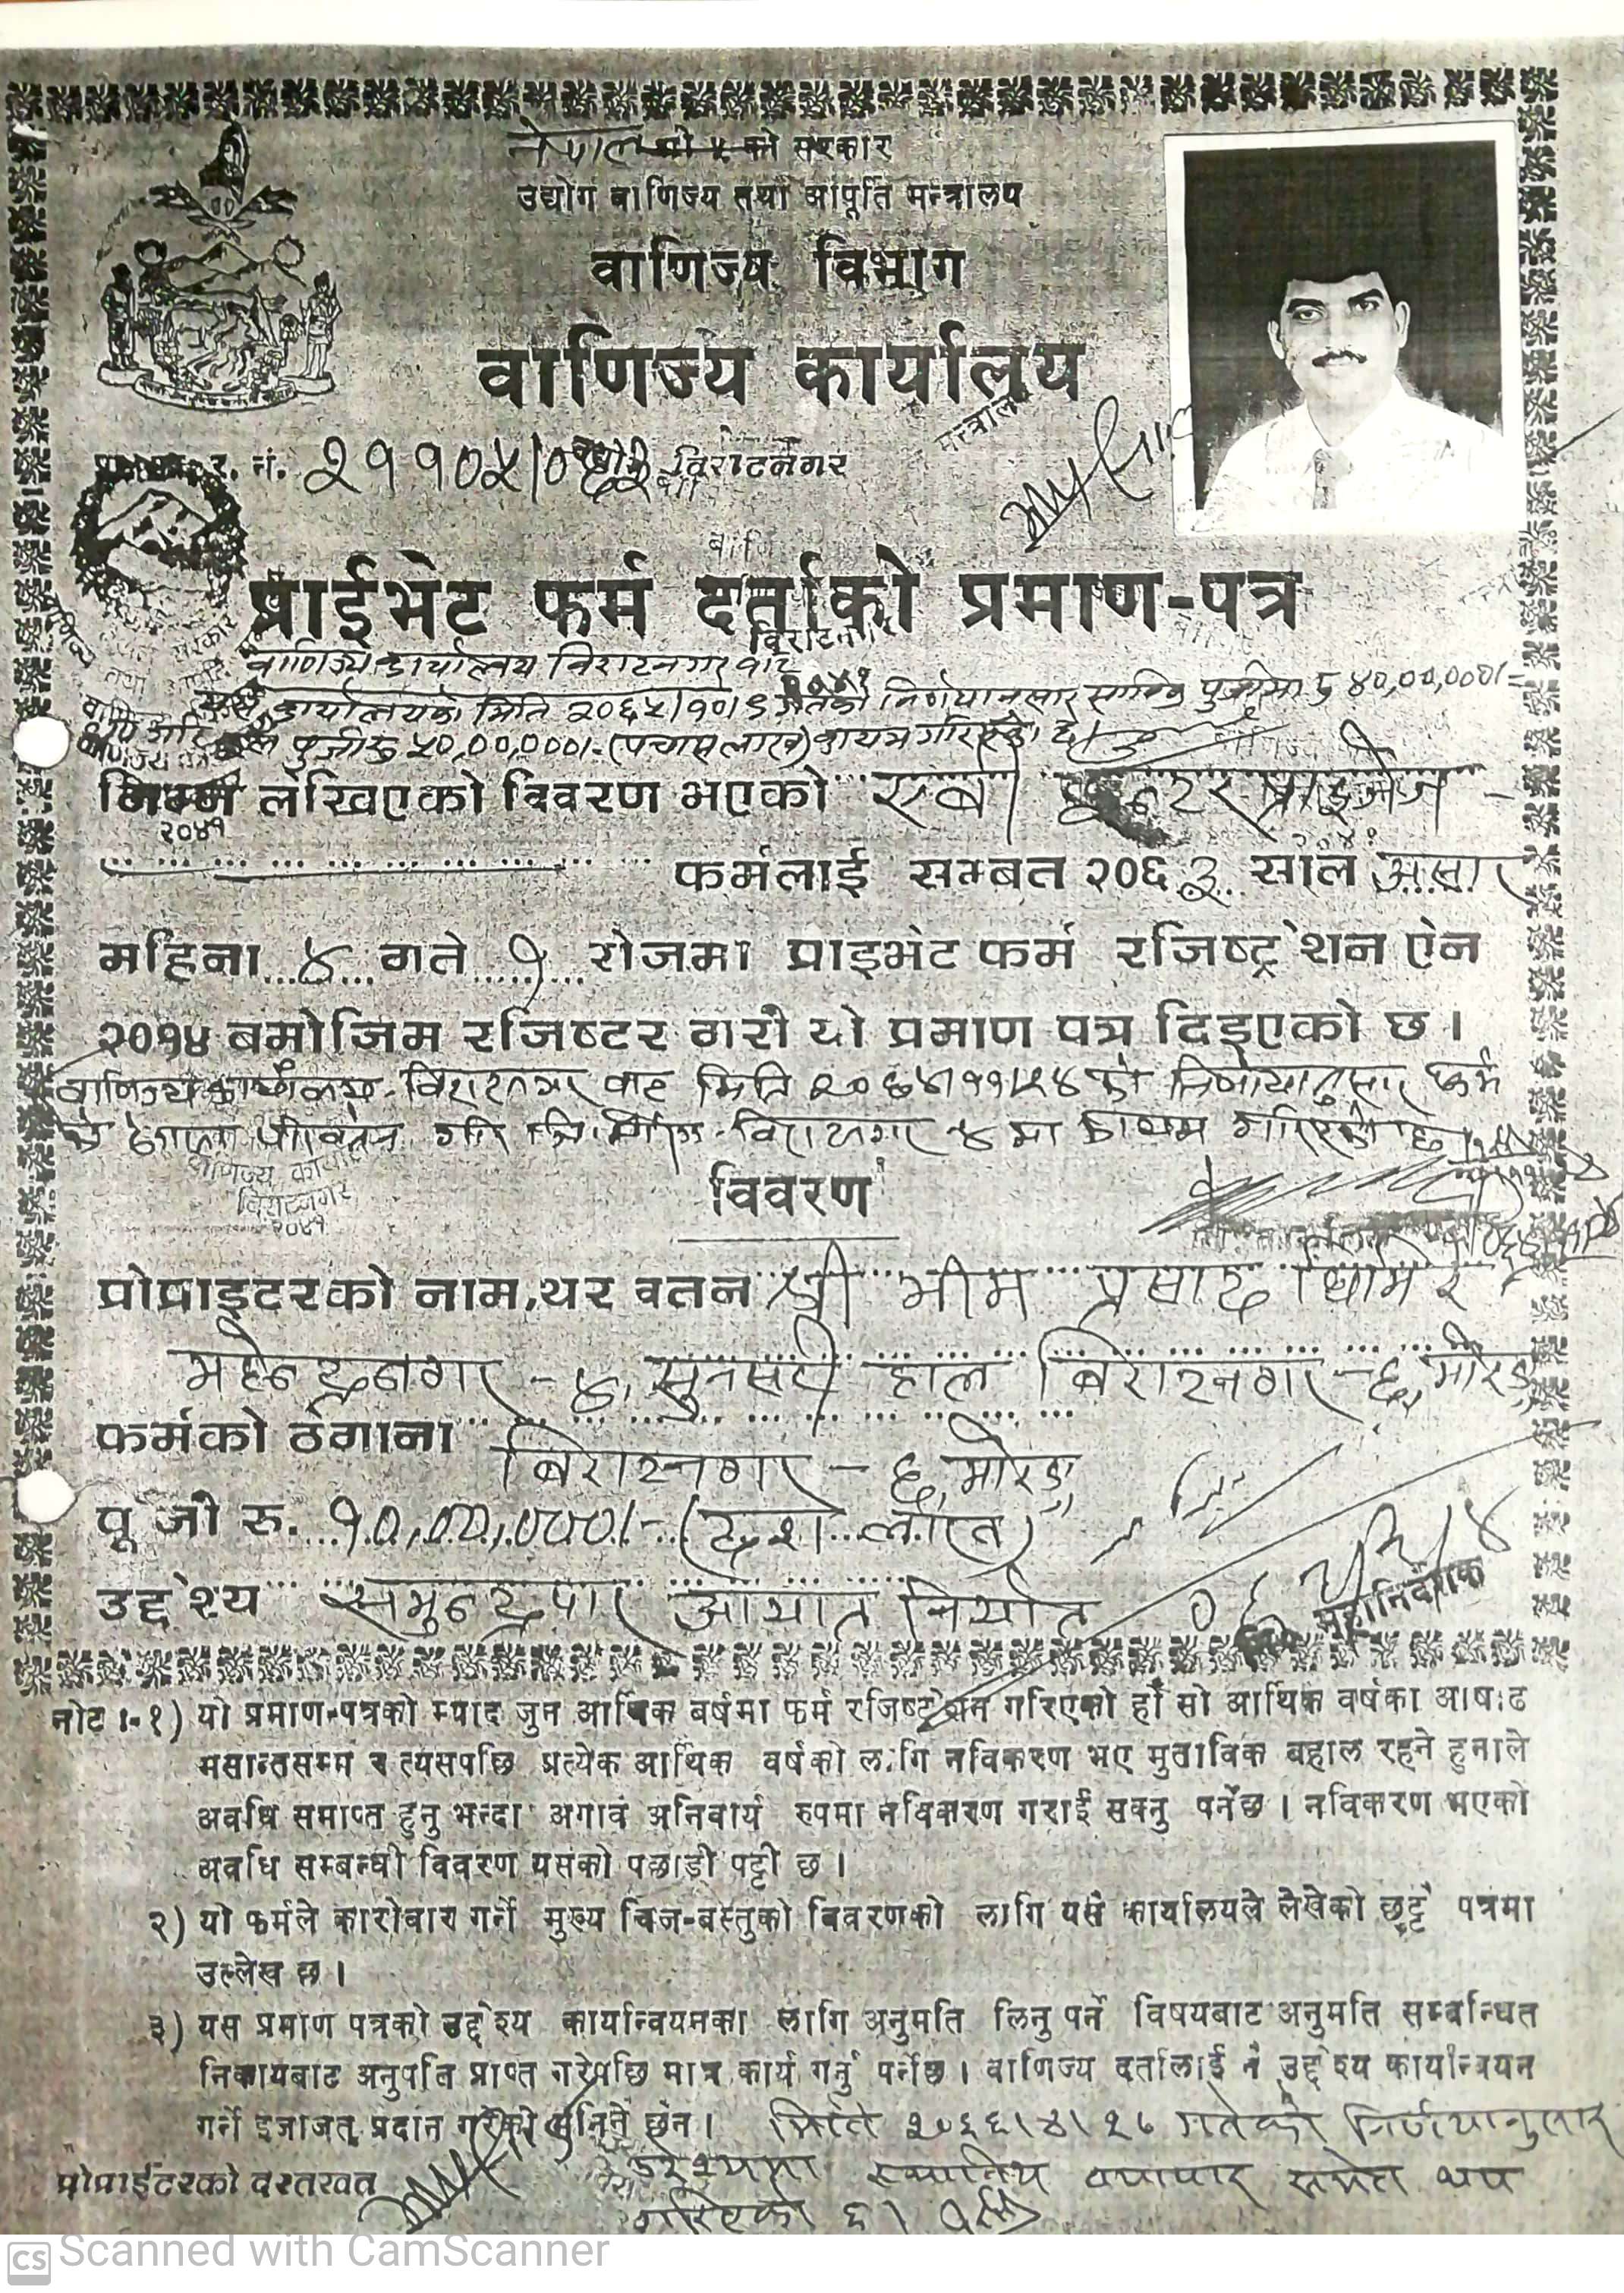 नेपाल सरकार
उद्योग बाणिज्य तथा आपूर्ति मन्त्रालय
वाणिज्य विभाग
वाणिज्य कार्यालय
मन्त्रालय
नं. २११०५/०६३ विराटनगर
प्राईभेट फर्म दर्ताको प्रमाण-पत्र
वाणिज्य कार्यालय विराटनगर बाट
कार्यालयको मिति २०६५/१०/९ गतेको निर्णयानुसार साविक पुँजीमा रु ४०,००,०००/=
पुँजी रु ५०,००,०००/- (पचास लाख) कायम गरिएको छ।
निम्न लेखिएको विवरण भएको सर्बा इन्टरप्राइजेज -
२०४१
फर्मलाई सम्बत २०६३ साल असार
महिना ४ गते १ रोजमा प्राइभेट फर्म रजिष्ट्रेशन ऐन
२०१४ बमोजिम रजिष्टर गरी यो प्रमाण पत्र दिइएको छ ।
वाणिज्य कार्यालय विराटनगर बाट मिति निर्णयानुसार फर्म
को ठेगाना विराटनगर मा कायम गरिएको छ
वाणिज्य कार्यालय
विराटनगर
२०४१
विवरण
प्रोप्राइटरको नाम,थर वतन श्री भीम प्रसाद घिमिरे
महेन्द्रनगर - ४, सुनसरी हाल बिराटनगर - ६, मोरङ
फर्मको ठेगाना बिराटनगर - ६, मोरङ
पूँजी रु. १०,००,०००/- (दश लाख)
उद्देश्य समुन्द्रपार आयात निर्यात
महानिर्देशक
नोट ।-१) यो प्रमाण-पत्रको म्याद जुन आर्थिक बर्षमा फर्म रजिष्ट्रेशन गरिएको हो सो आर्थिक वर्षका आषाढ
मसान्तसम्म र त्यसपछि प्रत्येक आर्थिक वर्षको लागि नविकरण भए मुताविक बहाल रहने हुनाले
अवधि समाप्त हुनु भन्दा अगावै अनिवार्य रुपमा नविकरण गराई सक्नु पर्नेछ । नविकरण भएको
अवधि सम्बन्धी विवरण यसको पछाडी पट्टी छ ।
२) यो फर्मले कारोबार गर्ने मुख्य चिज-बस्तुको बिवरणको लागि यसै कार्यालयले लेखेको छुट्टै पत्रमा
उल्लेख छ ।
३) यस प्रमाण पत्रको उद्देश्य कार्यान्वयनका लागि अनुमति लिनु पर्ने विषयबाट अनुमति सम्बन्धित
निकायबाट अनुमति प्राप्त गरेपछि मात्र कार्य गर्नु पर्नेछ । वाणिज्य दर्तालाई नै उद्देश्य कार्यान्वयन
गर्ने इजाजत प्रदान गरेको मानिने छैन । मिति २०६६।४।२८ गतेको निर्णयानुसार
उद्देश्यमा स्थानिय व्यापार समेत थप
गरिएको छ ।
प्रोप्राईटरको दस्तखत
CS Scanned with CamScanner